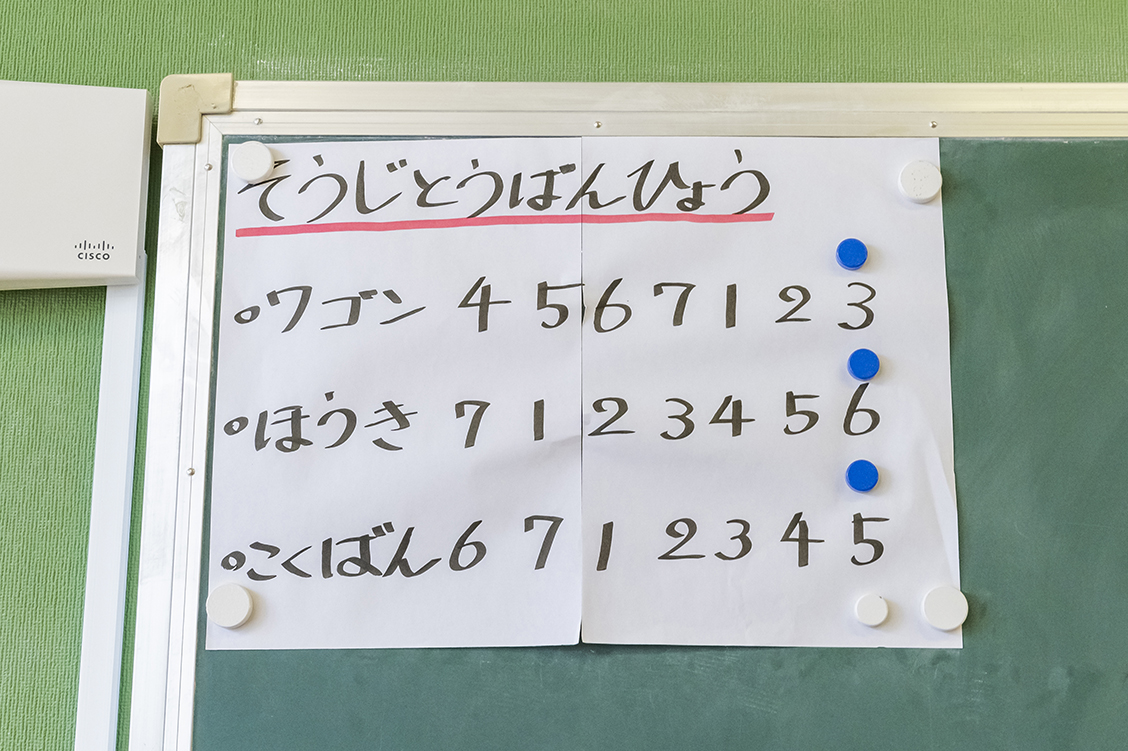 そうじとうばんひょう
。ワゴン 4 5 6 7 1 2 3
。ほうき 7 1 2 3 4 5 6
。こくばん 6 7 1 2 3 4 5
CISCO